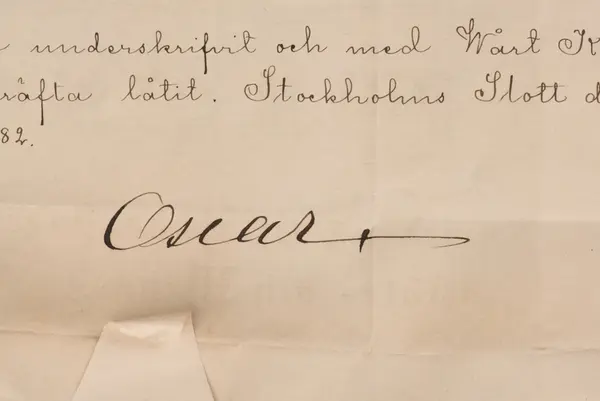 underskrifvit och med Wårt K
räfta låtit. Stockholms Slott d
82.
Oscar